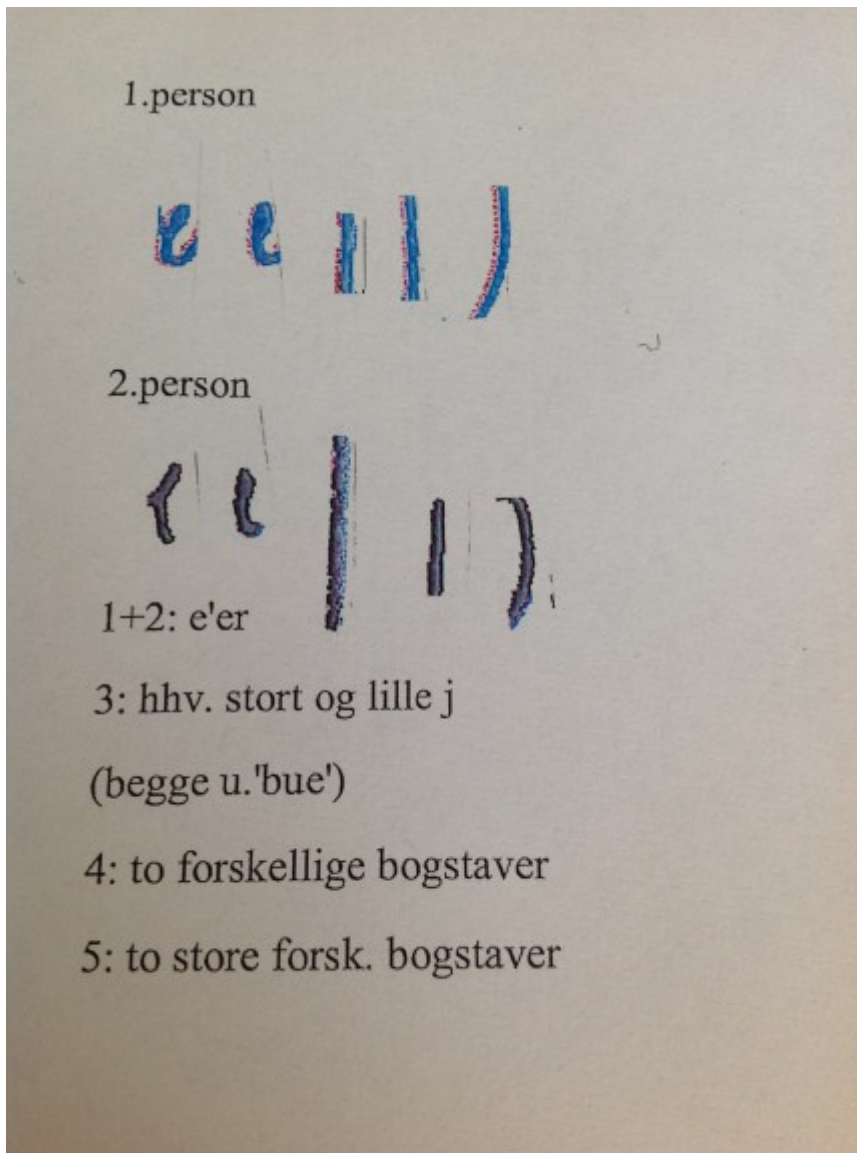 1.person
e e
2.person
e
1+2: e'er
3: hhv. stort og lille j
(begge u.'bue')
4: to forskellige bogstaver
5: to store forsk. bogstaver